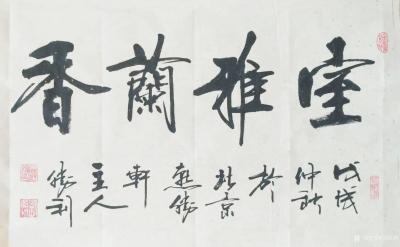 室雅蘭香
戊戌
仲秋
於
北京
軒
主人
勝利